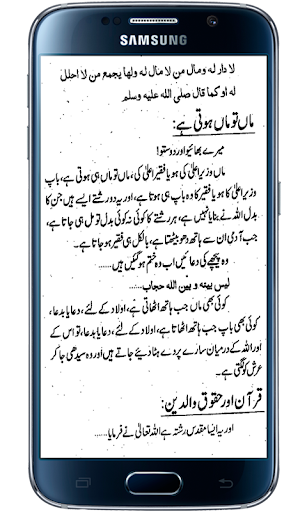 SAMSUNG
لا دار له ومال من لا مال له ولها يجمع من لا احلل
له او كما قال صلى الله عليه وسلم
ماں تو ماں ہوتی ہے:
میرے بھائیو اور دوستو!
ماں وزیر اعلیٰ کی ہو یا فقیر اعلیٰ کی، ماں تو ماں ہی ہوتی ہے، باپ
وزیر اعلیٰ کا ہو یا فقیر کا وہ باپ ہی ہوتا ہے، اور یہ دو رشتے ایسے ہیں جن کا
بدل اللہ نے بنایا نہیں ہے، ہر رشتے کا کوئی نہ کوئی بدل تو مل ہی جاتا ہے،
جب آدمی ان سے ہاتھ دھو بیٹھتا ہے، بالکل ہی فقیر ہو جاتا ہے۔
وہ پیچھے کی دعائیں اب وہ ختم ہو گئیں ہیں......
ليس بينه و بين الله حجاب
کوئی بھی ماں جب ہاتھ اٹھاتی ہے، اولاد کے لئے، دعا یا بدعا،
کوئی بھی باپ جب ہاتھ اٹھاتا ہے، اولاد کے لئے، دعا یا بدعا، تو اس کے
اور اللہ کے درمیان سارے پردے ہٹا دیئے جاتے ہیں اور وہ سیدھی جا کر
عرش کو لگتی ہے۔
قرآن اور حقوق والدین:
اور یہ ایسا مقدس رشتہ ہے اللہ تعالیٰ نے فرمایا......